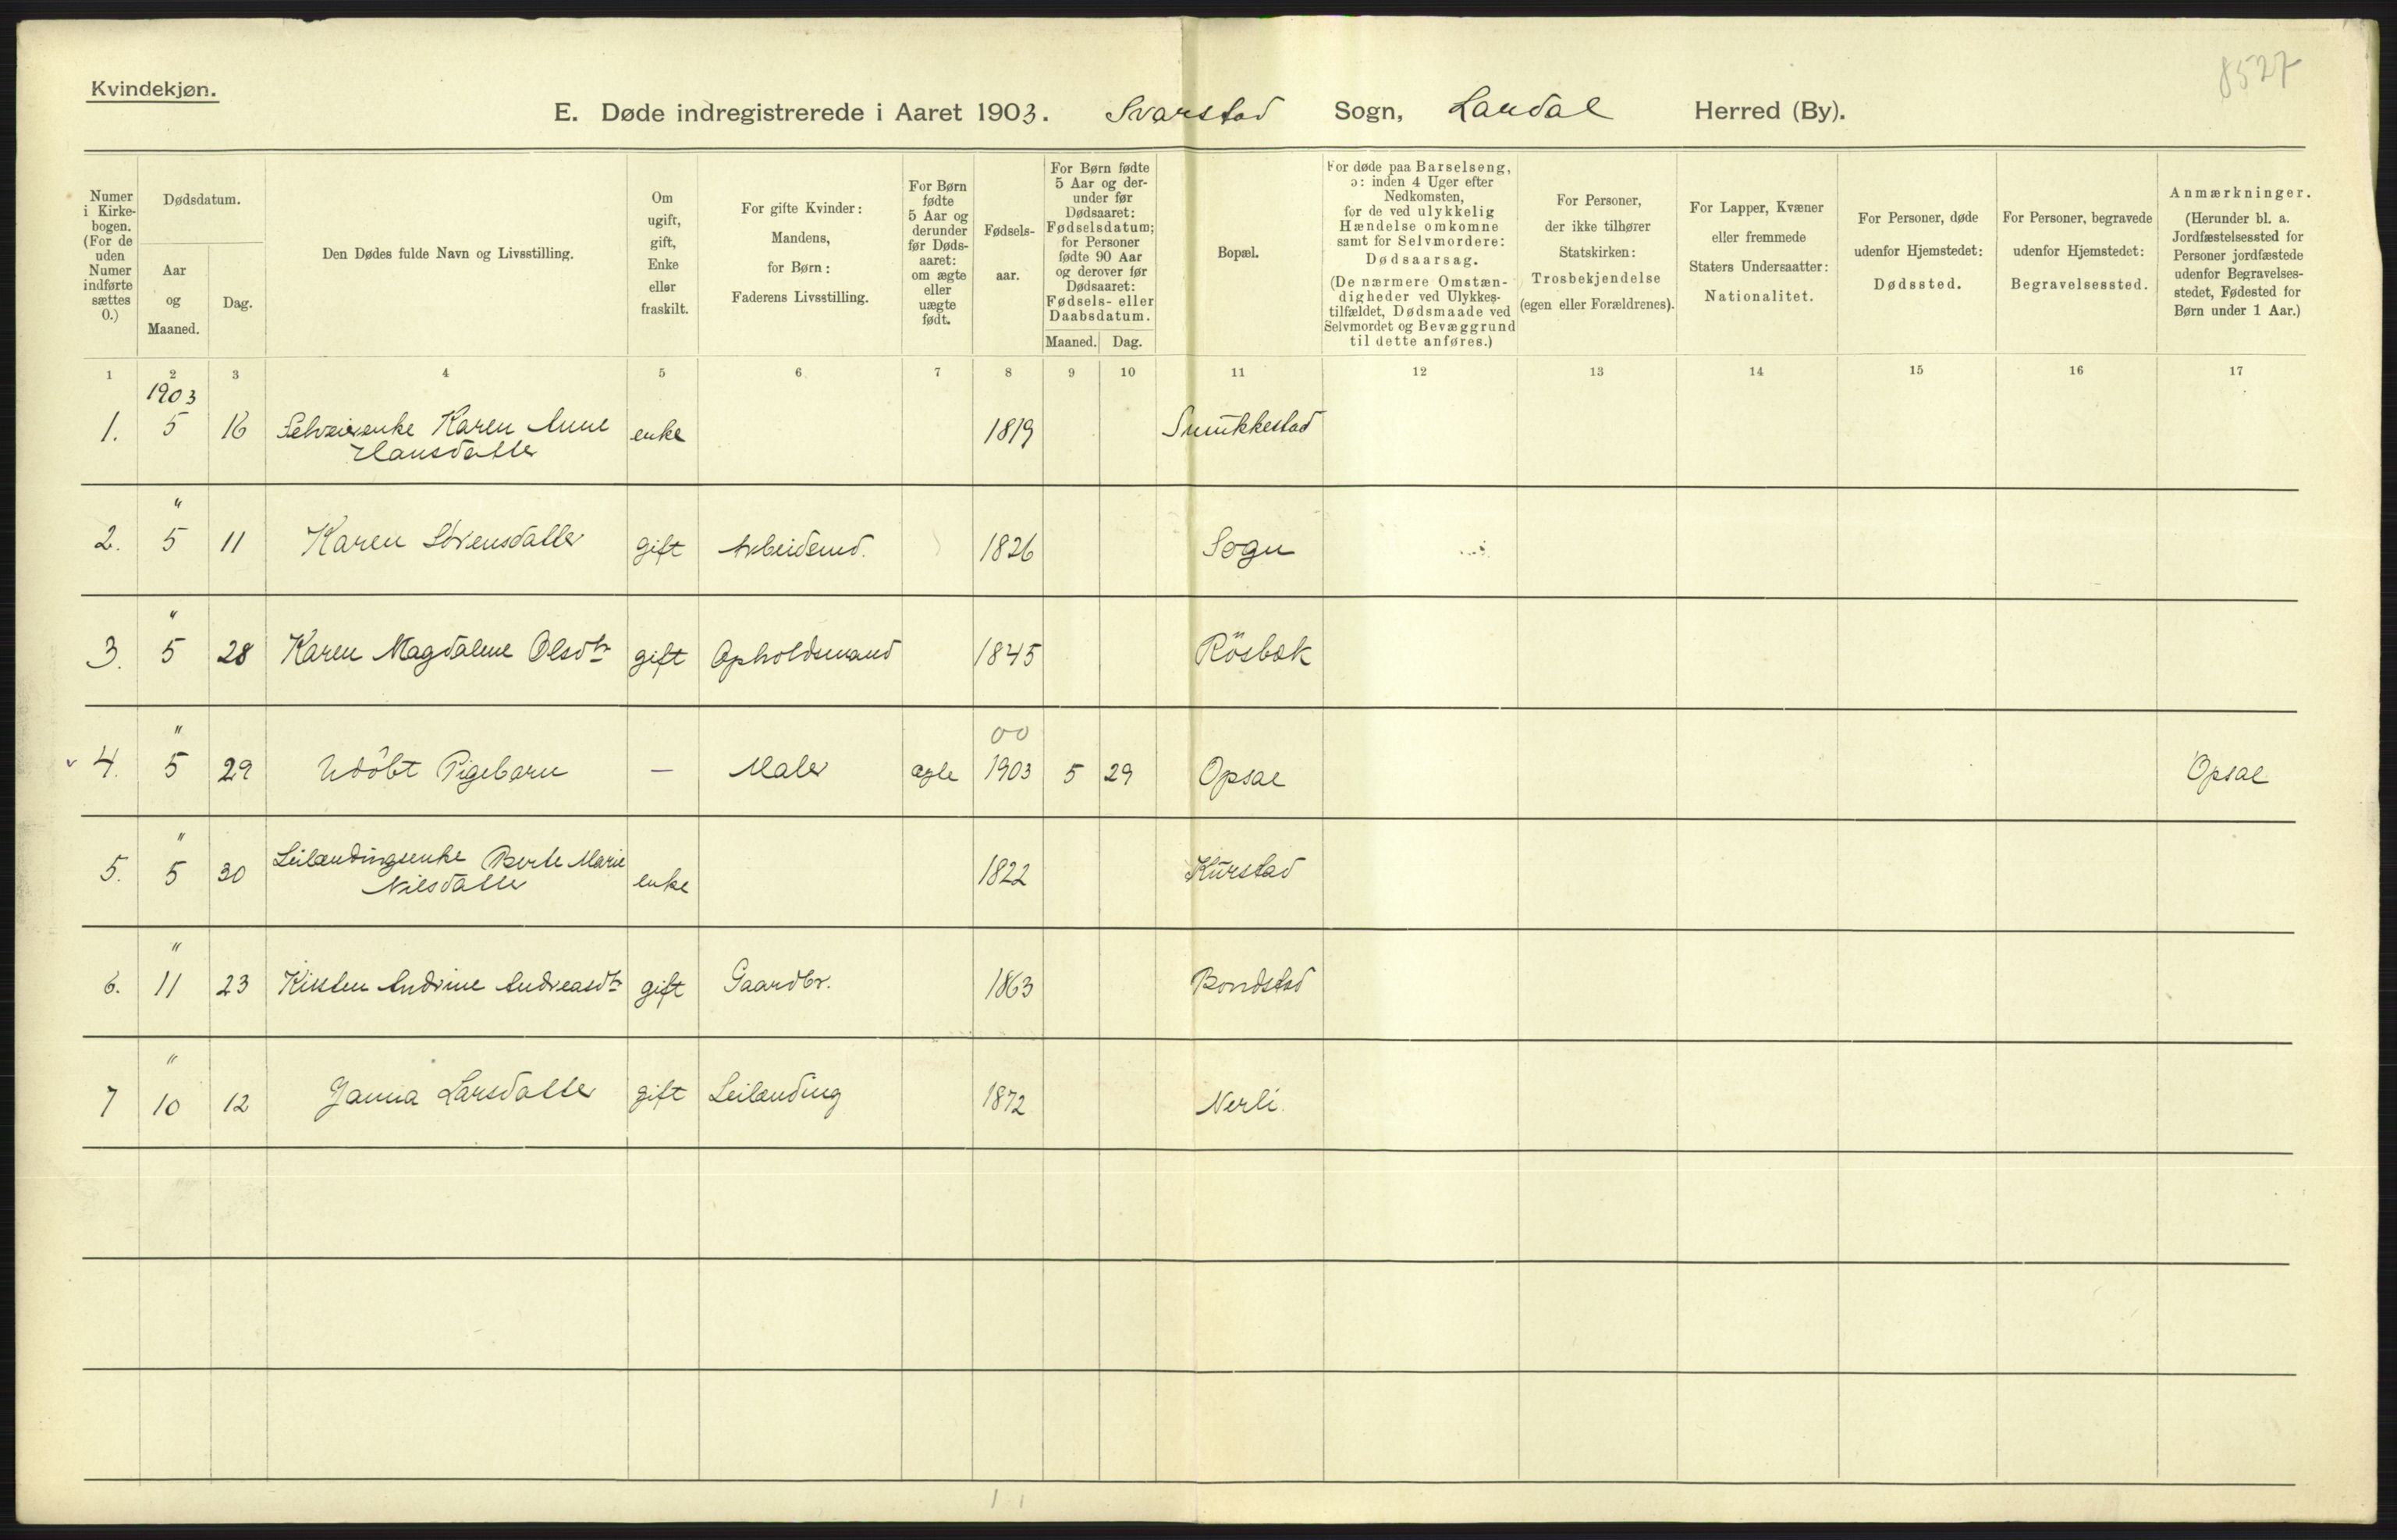 8527
Kvindekjøn.
E. Døde indregistrerede i Aaret 1903. Svarstad Sogn, Lardal Herred (By).
Numer i Kirke-bogen. (For de uden Numer indførte sættes 0.)
Dødsdatum.
Aar og Maaned.
Dag.
Den Dødes fulde Navn og Livsstilling.
Om ugift, gift, Enke eller fraskilt.
For gifte Kvinder: Mandens, for Børn: Faderens Livsstilling.
For Børn fødte 5 Aar og derunder før Døds-aaret: om ægte eller uægte født.
Fødsels-aar.
For Børn fødte 5 Aar og der-under før Dødsaaret: Fødselsdatum; for Personer fødte 90 Aar og derover før Dødsaaret: Fødsels- eller Daabsdatum.
Maaned. Dag.
Bopæl.
For døde paa Barselseng, ɔ: inden 4 Uger efter Nedkomsten, for de ved ulykkelig Hændelse omkomne samt for Selvmordere: Dødsaarsag. (De nærmere Omstæn-digheder ved Ulykkes-tilfældet, Dødsmaade ved Selvmordet og Bevæggrund til dette anføres.)
For Personer, der ikke tilhører Statskirken: Trosbekjendelse (egen eller Forældrenes).
For Lapper, Kvæner eller fremmede Staters Undersaatter: Nationalitet.
For Personer, døde udenfor Hjemstedet: Dødssted.
For Personer, begravede udenfor Hjemstedet: Begravelsessted.
Anmærkninger. (Herunder bl. a. Jordfæstelsessted for Personer jordfæstede udenfor Begravelses-stedet, Fødested for Børn under 1 Aar.)
1 2 3 4 5 6 7 8 9 10 11 12 13 14 15 16 17
1903
1. 5 16 Selveierenke Karen Anne Hansdatter enke 1819 Snukkestad
"
2. 5 11 Karen Sörensdatter gift Arbeidsmd. 1826 Sogn
"
3. 5 28 Karen Magdalene Olsdtr gift Opholdsmand 1845 Rösbæk
" 00
4. 5 29 Udöbt Pigebarn — Maler ægte 1903 5 29 Opsal Opsal
"
5. 5 30 Leilændingsenke Berte Marie Nilsdatter enke 1822 Kurstad
"
6. 11 23 Kirsten Andrine Andreasdtr gift Gaardbr. 1863 Bondstad
"
7 10 12 Janna Larsdatter gift Leilænding 1872 Nerli